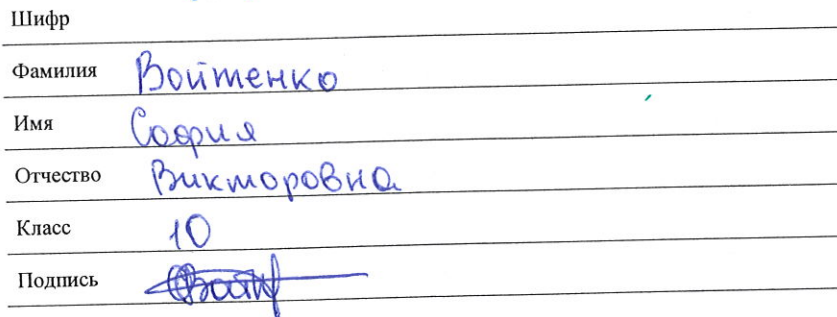 Шифр
Фамилия Войтенко
Имя София
Отчество Викторовна
Класс 10
Подпись